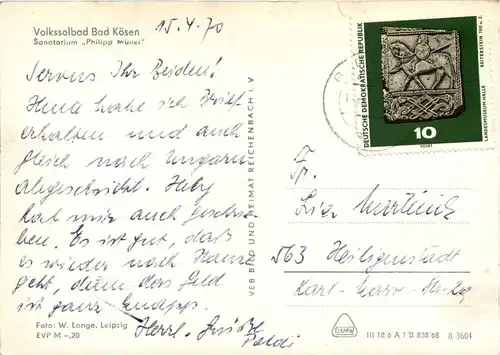 Volkssolbad Bad Kösen
Sanatorium „Philipp Müller"
15.4.70
Servus Ihr Beiden!
Heut habe ich Brief
erhalten und auch
gleich nach Ungarn
abgeschickt.
hat mir auch geschrie-
ben. Es ist gut, daß
es wieder nach Hause
geht, denn das Geld
ist ganz knapp.
Herzl. Grüße
Poldi
Foto: W. Lange, Leipzig
EVP M –,20
VEB BILD UND HEIMAT REICHENBACH i. V.
DEUTSCHE DEMOKRATISCHE REPUBLIK
REITERSTEIN 700 u.Z.
LANDESMUSEUM HALLE
10
Fr.
563 Heiligenstadt
Karl-Marx-Str.
DAMW
III 18/6 A 1 B 838/68 8 3604